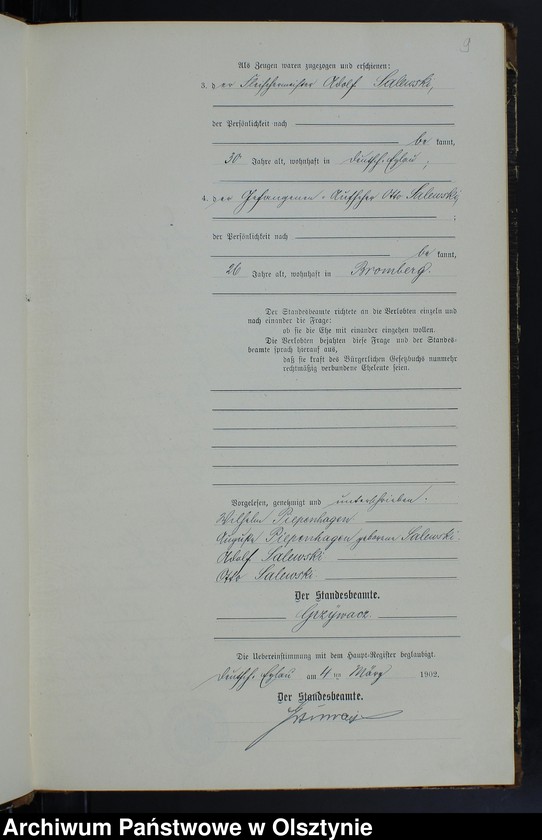 9
Als Zeugen waren zugezogen und erschienen:
3. der Fleischermeister Adolf Salewski,
der Persönlichkeit nach
be kannt,
30 Jahre alt, wohnhaft in Deutsch-Eylau;
4. der Gefangenen-Aufseher Otto Salewski,
;
der Persönlichkeit nach
be kannt,
26 Jahre alt, wohnhaft in Bromberg.
Der Standesbeamte richtete an die Verlobten einzeln und
nach einander die Frage:
ob sie die Ehe mit einander eingehen wollen.
Die Verlobten bejahten diese Frage und der Standes-
beamte sprach hierauf aus,
daß sie kraft des Bürgerlichen Gesetzbuchs nunmehr
rechtmäßig verbundene Eheleute seien.
Vorgelesen, genehmigt und unterschrieben.
Wilhelm Piepenhagen
Auguste Piepenhagen geborene Salewski.
Adolf Salewski
Otto Salewski
Der Standesbeamte.
Grzywacz.
Die Uebereinstimmung mit dem Haupt-Register beglaubigt.
Deutsch-Eylau am 4 ten März 1902.
Der Standesbeamte.
Archiwum Państwowe w Olsztynie